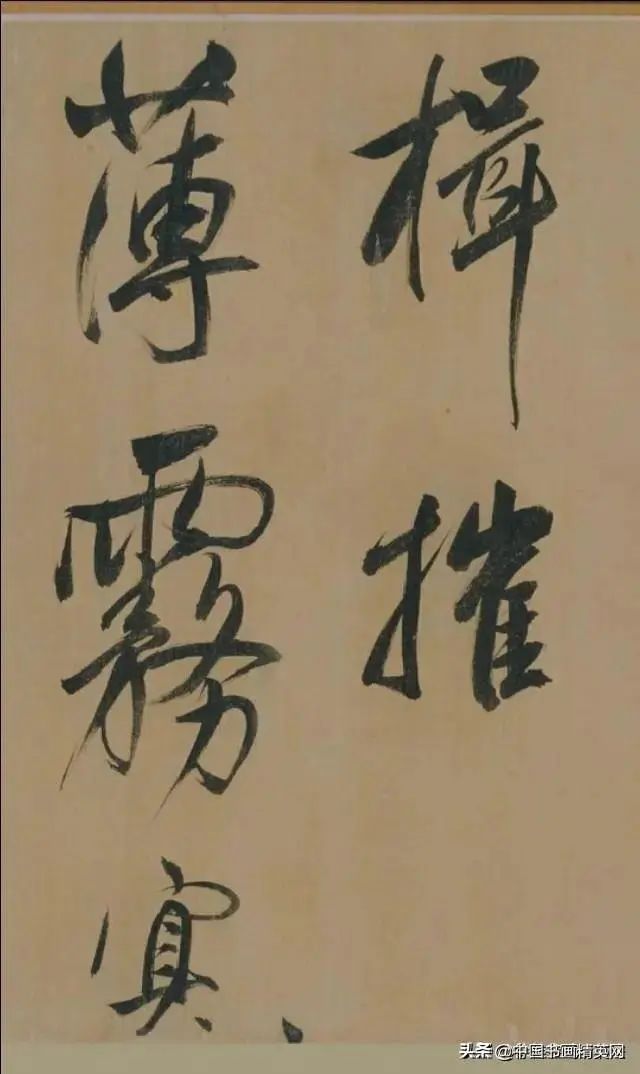 楫摧
薄霧冥、
头条 @中国书画精英网